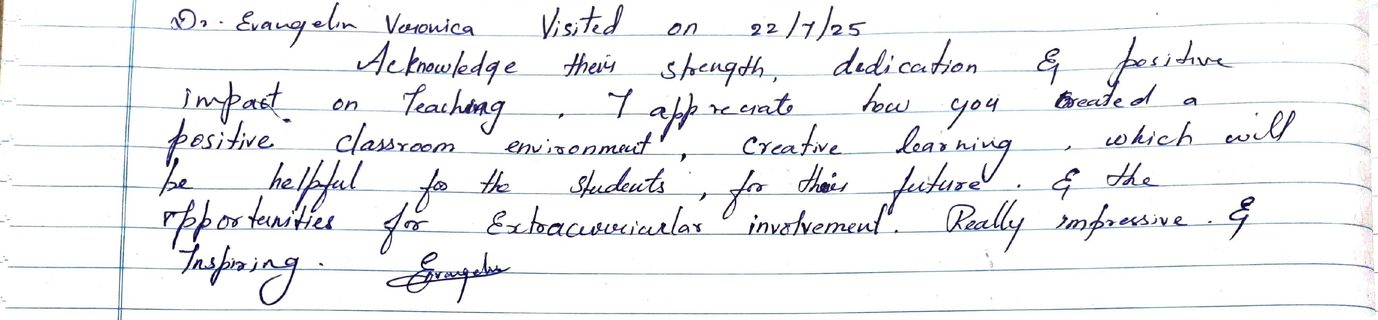 Dr. Evangelin Veronica Visited on 22/7/25
Acknowledge their strength, dedication & positive
impact on Teaching. I appreciate how you created a
positive classroom environment, creative learning, which will
be helpful for the students, for their future. & the
opportunities for Extracurricular involvement. Really impressive. &
Inspiring. Evangelin